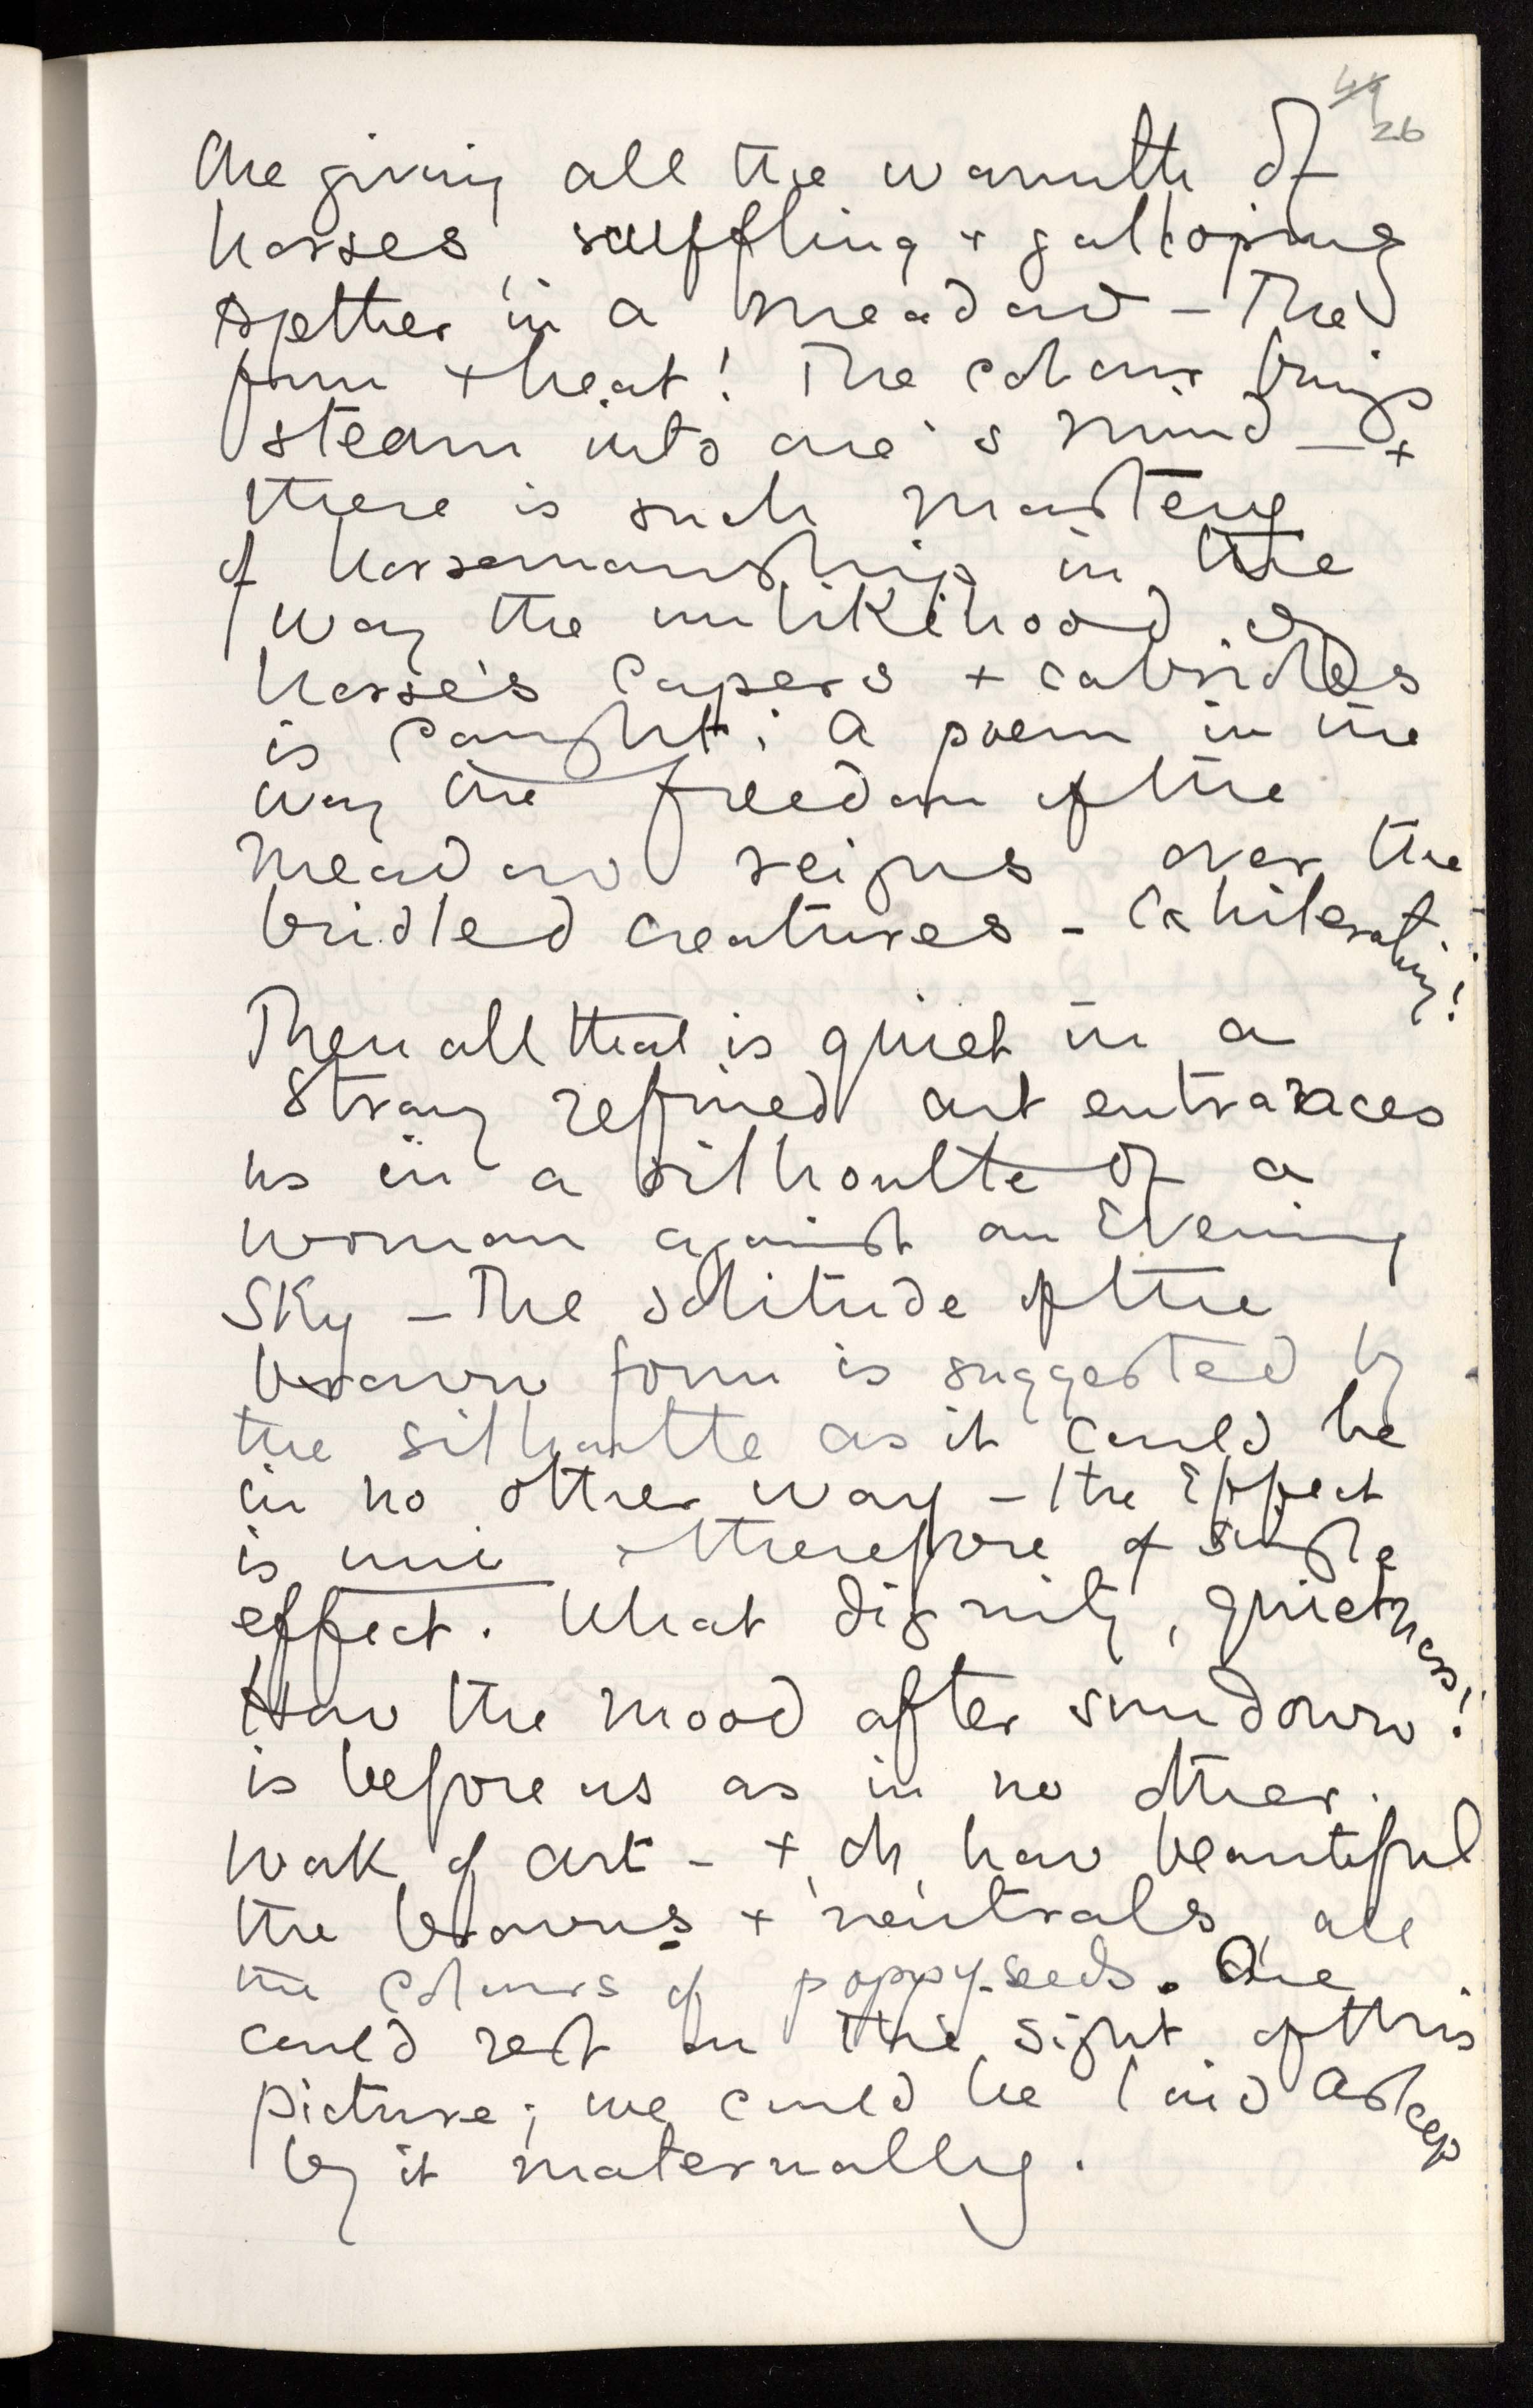 49
26
One giving all the warmth of
horses scuffling + galloping
together in a meadow – The
form + heat! The colour brings
steam into one's mind – +
there is such mastery
of horsemanship in the
way the unlikihood of
horse's capers +
is caught: A poem in the
way the freedom of the
meadow reigns over the
bridled creatures – Exhilerating!
Then all that is quiet in a
strong refined art entrances
us in a silhoulte of a
woman against an Evening
Sky – The solitude of the
brown form is suggested by
the silhoutte as it could be
in no other way – the Effect
is therefore of single
effect. What dignity, quietness!
How the mood after sundown!
is before us as in no other
work of art – + oh, how beautiful
the browns + neutrals, all
the colours of poppy-seeds. One
could rest in the sight of this
picture; we could be laid asleep
by it maternally.